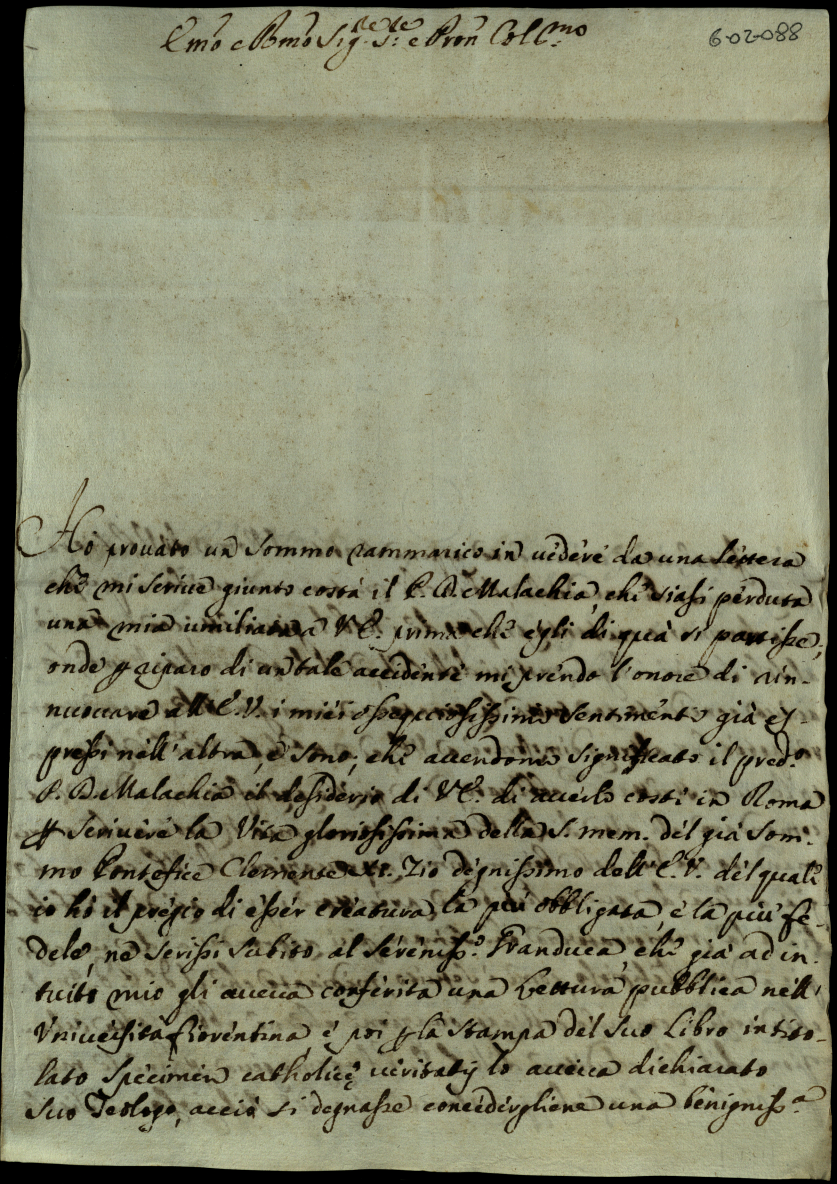 Emo e Rmo Sig.re S.re e Pron Col.mo
6-02-088
Hò prouato un sommo rammarico in uedere da una lettera
che mi scriue giunto costà il P. D. Malachia, che siasi perduta
una mia umiliata a V.E. prima che egli di quà si partisse;
onde p riparo di un tale accidente mi prendo l'onore di rin-
nuouare all'E.V. i miei ossequiosissimi sentimenti già es-
pressi nell'altra, e sono, che auendomi significato il pred.o
P. D. Malachia il desiderio di V.E. di auerlo costì in Roma
p scriuere la Vita gloriosissima della S. mem. del già Som-
mo Pontefice Clemente XI. Zio degnissimo dell'E.V. del quale
io hò il pregio di esser creatura la più obbligata, e la più fe-
dele, ne scrissi subito al Sereniss.o Granduca, che già ad in-
tuito mio gli aueua conferita una Lettura pubblica nell'
Vniuersità fiorentina, e poi p la stampa del suo Libro intito-
lato Specimen catholicę ueritatis lo aueua dichiarato
suo Teologo, acciò si degnasse concedergliene una benigniss.a